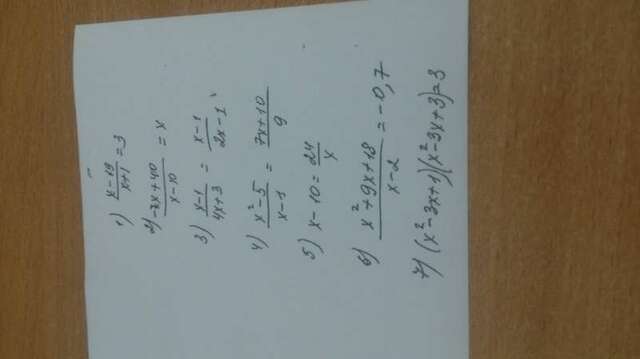 1) x-19/x+1 = 3
2) -2x+40/x-10 = x
3) x-1/4x+3 = x-1/2x-1
4) x²-5/x-1 = 7x+10/9
5) x-10 = 24/x
6) x²+9x+18/x-2 = -0,7
7) (x²-3x+1)(x²-3x+3)=3